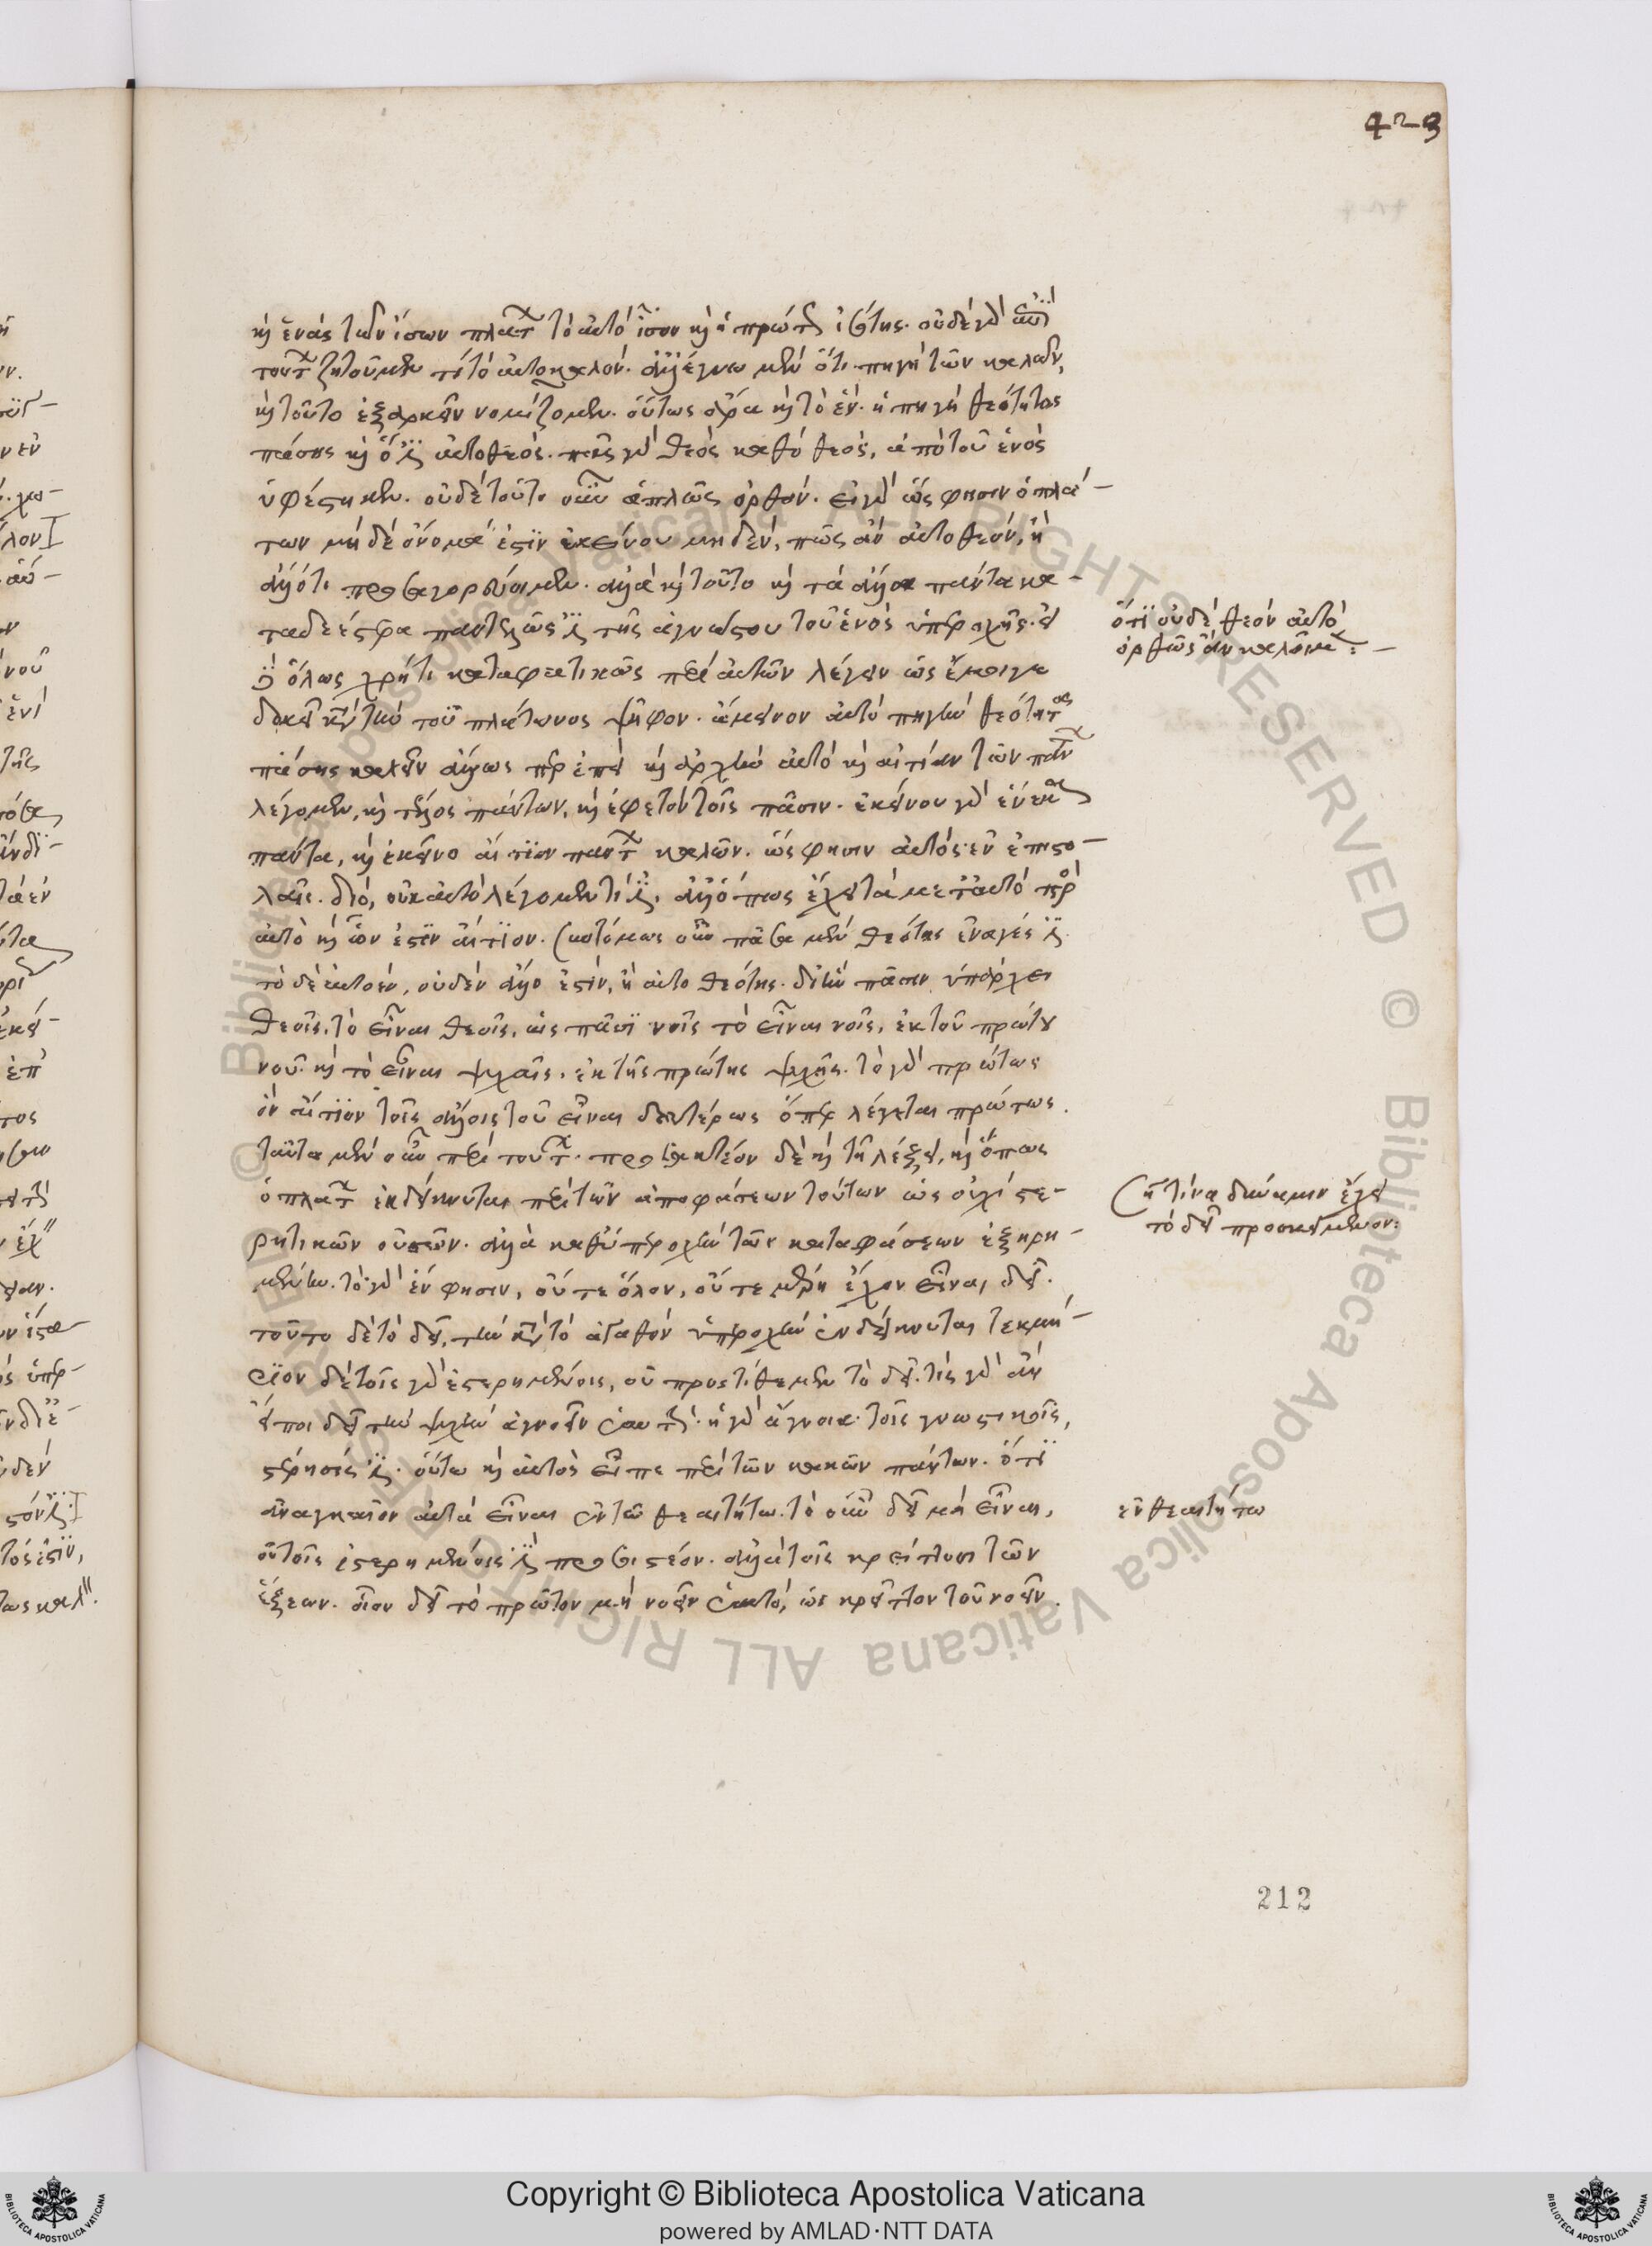 423
καὶ ἑνὰς τῶν ἴσων πλάτων τὸ αὐτὸ ἴσον καὶ ἡ πρώτη ἰσότης. οὐδὲ γὰρ
τούτων ζητοῦμεν τί τὸ αὐτοκαλὸν. ἀλλ' ἔγνω μὲν ὅτι πηγὴ τῶν καλῶν,
καὶ τοῦτο ἐξαρκεῖν νομίζομεν. οὕτως ἄρα καὶ τὸ ἕν. ἡ πηγὴ θεότητος
πάσης καὶ ὅ ἐστι αὐτοθεὸς. πᾶς γὰρ θεὸς καθὸ θεὸς, ἀπὸ τοῦ ἑνὸς
ὑφέστηκεν. οὐδὲ τοῦτο οὖν ἁπλῶς ὀρθόν. εἰ γὰρ ὥς φησιν ὁ πλά-
των μηδὲ ὄνομά ἐστιν ἐκείνου μηδέν, πῶς ἂν αὐτοθεόν, ἢ
ἄλλό τι προσαγορεύοιμεν. ἀλλὰ καὶ τοῦτο καὶ τὰ ἄλλα πάντα κα-
ταδεέστερα παντελῶς ἐστι τῆς ἀγνώστου τοῦ ἑνὸς ὑπεροχῆς. εἰ
δ' ὅλως χρή τι καταφατικῶς περὶ αὐτῶν λέγειν ὡς ἔμοιγε
δοκεῖ κατὰ τὴν τοῦ πλάτωνος ψῆφον. ἄμεινον αὐτὸ πηγὴν θεότητος
πάσης καλεῖν ἄλλως πρέπει καὶ ἀρχὴν αὐτὸ καὶ αἰτίαν τῶν πάντων
λέγομεν, καὶ τέλος πάντων, καὶ ἐφετὸν τοῖς πᾶσιν. ἐκείνου γὰρ ἕνεκα
πάντα, καὶ ἐκεῖνο αἴτιον πάντων καλῶν. ὥς φησιν αὐτός ἐν ἐπιστο-
λαῖς. διό, οὐκ αὐτὸ λέγομεν τί ἐστι, ἀλλ' ὅπως ἔχει τὰ μετ' αὐτὸ πρὸς
αὐτὸ καὶ ὧν ἐστιν αἴτιον. συντόμως οὖν πᾶσα μὲν θεότης ἑνάς ἐστι.
τὸ δὲ αὐτοέν, οὐδὲν ἄλλο ἐστίν, ἢ αὐτοθεότης. δι' ἣν πᾶσιν ὑπάρχει
θεοῖς, τὸ εἶναι θεοῖς, ὡς πᾶσι νοῖς τὸ εἶναι νοῖς, ἐκ τοῦ πρώτου
νοῦ. καὶ τὸ εἶναι ψυχαῖς, ἐκ τῆς πρώτης ψυχῆς. τὸ γὰρ πρώτως
ὂν αἴτιον τοῖς ἄλλοις τοῦ εἶναι δευτέρως ὅπερ λέγεται πρώτως.
ταῦτα μὲν οὖν περὶ τούτων. προσεκτέον δὲ καὶ τῇ λέξει, καὶ ὅπως
ὁ πλάτων ἐνδείκνυται περὶ τῶν ἀποφάσεων τούτων ὡς οὐχὶ στε-
ρητικῶν οὐσῶν. ἀλλὰ καθ' ὑπεροχὴν τῶν καταφάσεων ἐξῃρη-
μένων. τὸ γὰρ ἕν φησιν, οὔτε ὅλον, οὔτε μέρη ἔχον εἶναι δεῖ.
τοῦτο δὲ τὸ δεῖ, τὴν κατὰ τὸ ἀγαθὸν ὑπεροχὴν ἐνδείκνυται τεκμή-
ριον δὲ τοῖς γὰρ ἐστερημένοις, οὐ προστίθεμεν τὸ δεῖ. τίς γὰρ ἂν
εἴποι δεῖ τὴν ψυχὴν ἀγνοεῖν ἑαυτήν. ἡ γὰρ ἄγνοια τοῖς γνωστικοῖς,
στέρησίς ἐστι. οὕτω καὶ αὐτὸς εἶπε περὶ τῶν κακῶν πάντων. ὅτι
ἀναγκαῖον αὐτὰ εἶναι ἐν τῷ θεαιτήτῳ. τὸ οὖν δεῖ μὴ εἶναι,
οὐ τοῖς ἐστερημένοις ἐστὶ προσοιστέον. ἀλλὰ τοῖς κρείττοσι τῶν
ἕξεων. οἷον δεῖ τὸ πρῶτον μὴ νοεῖν ἑαυτό, ὡς κρεῖττον τοῦ νοεῖν.
ὅτι οὐδὲ θεὸν αὐτὸ
ὀρθῶς ἂν καλοῖμεν:-
τίνα δύναμιν ἔχει
τὸ δεῖ προσκείμενον:
ἐν θεαιτήτῳ
212
Copyright © Biblioteca Apostolica Vaticana
powered by AMLAD·NTT DATA